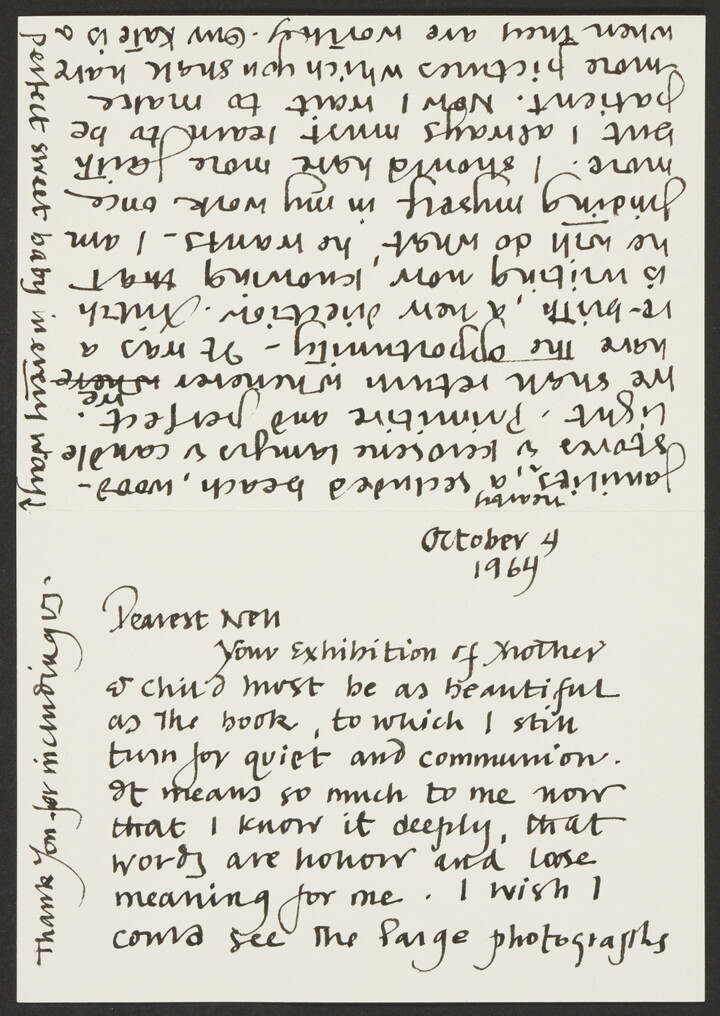 October 4
1964
Dearest Nell
Your Exhibition of Mother
& Child must be as beautiful
as the book, to which I still
turn for quiet and communion.
It means so much to me now
that I know it deeply, that
words are hollow and loose
meaning for me. I wish I
could see the large photographs
Thank you for including us.
nearby
families, a secluded beach, wood-
stoves & kerosene lamps & candle
light. Primitive and perfect.
we
We shall return whenever where
have the opportunity - It was a
re-birth, a new direction. Mitch
is writing now, knowing that
he will do what he wants - I am
finding myself in my work once
more. I should have more faith
but I always must learn to be
patient. Now I want to make
more pictures which you shall have
when they are worthy. Our Kate is a
perfect sweet baby in every way!